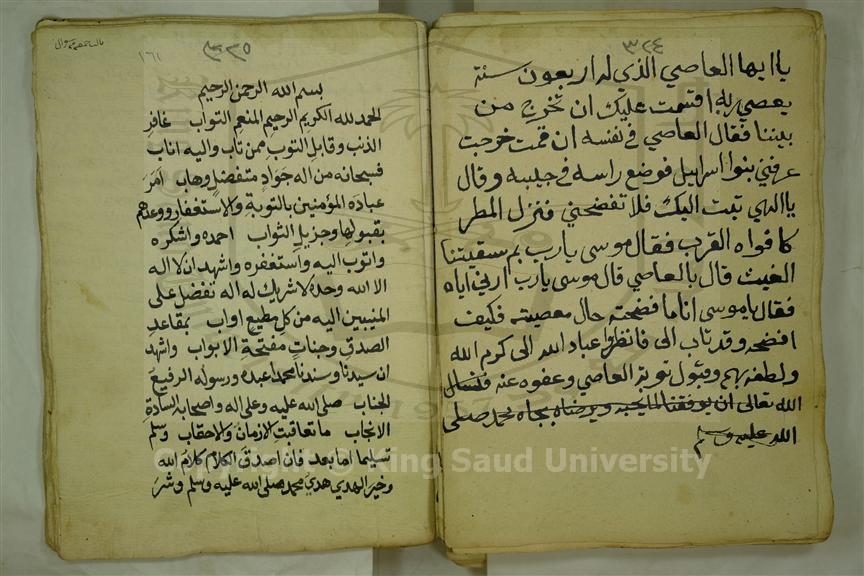 ٣٢٤
ياايها العاصي الذي له اربعون سنة
يعصي ربه اقسمت عليك ان تخرج من
بيننا فقال العاصي في نفسه ان قمت خرجت
عرفني بنوا اسرايل فوضع راسه في جيبه وقال
ياالهي تبت اليك فلا تفضحني فنزل المطر
كافواه القرب فقال موسى يارب بم سقيتنا
الغيث قال بالعاصي قال موسى يارب ارني اياه
فقال ياموسى انا ما فضحته حال معصيته فكيف
افضحه وقد تاب الى فانظروا عباد الله الى كرم الله
ولطفه بهم وقبول توبة العاصي وعفوه عنه فنسال
الله تعالى ان يوفقنا لما يحبه ويرضاه بجاه محمد صلى
الله عليه وسلم
٣٣٥
١٦١
بسم الله الرحمن الرحيم
الحمد لله الكريم الرحيم المنعم التواب غافر
الذنب وقابل التوب ممن تاب واليه اناب
فسبحانه من اله جواد متفضل وهاب امر
عباده المؤمنين بالتوبة والاستغفار ووعدهم
بقبولها وجزيل الثواب احمده واشكره
واتوب اليه واستغفره واشهد ان لا اله
الا الله وحده لا شريك له اله تفضل على
المنيبين اليه من كل مطيع اواب بمقاعد
الصدق وجنات مفتحة الابواب واشهد
ان سيدنا وسندنا محمدا عبده ورسوله الرفيع
الجناب صلى الله عليه وعلى اله واصحابه السادة
الانجاب ما تعاقبت الازمان والاحقاب وسلم
تسليما اما بعد فان اصدق الكلام كلام الله
وخير الهدي هدي محمد صلى الله عليه وسلم وشر
Copyright © King Saud University
1957